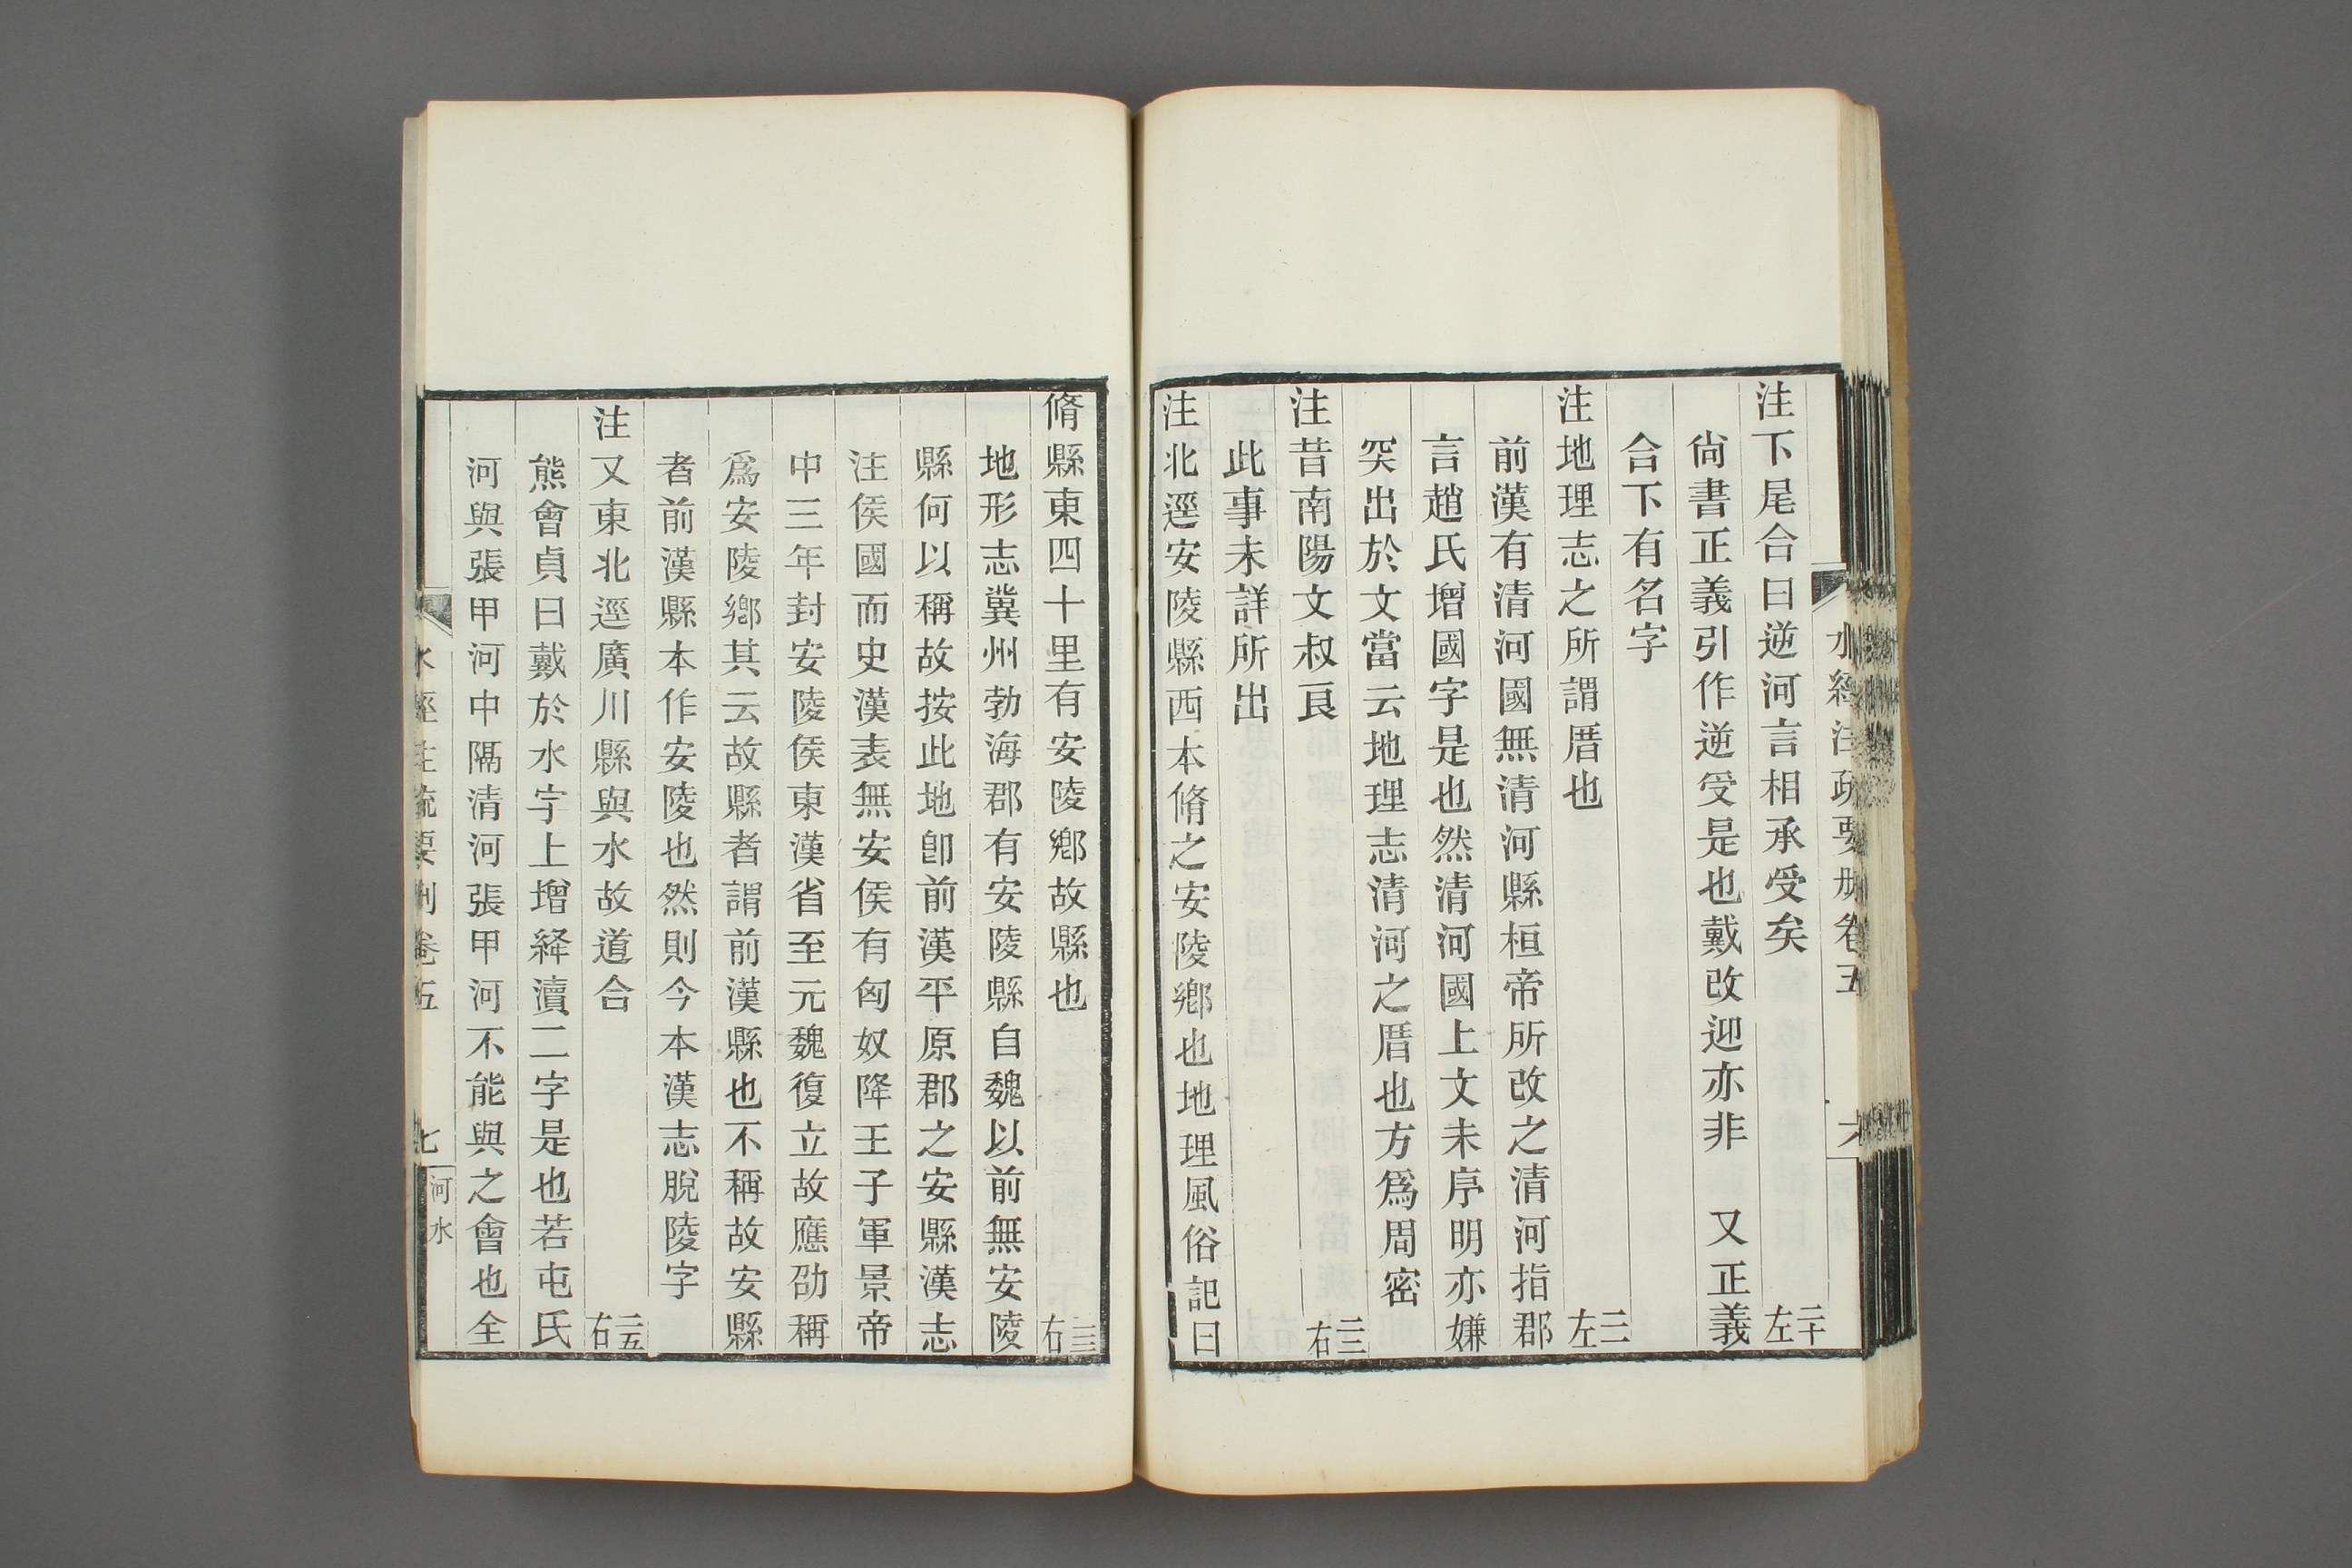 水經注疏要刪卷五
六
注下尾合曰逆河言相承受矣 二十左
尙書正義引作逆受是也戴改迎亦非 又正義
合下有名字
注地理志之所謂厝也 二一左
前漢有清河國無清河縣桓帝所改之清河指郡
言趙氏增國字是也然清河國上文未序明亦嫌
突出於文當云地理志清河之厝也方爲周密
注昔南陽文叔良 二三右
此事未詳所出
注北逕安陵縣西本脩之安陵鄉也地理風俗記曰
脩縣東四十里有安陵鄉故縣也 二三右
地形志冀州勃海郡有安陵縣自魏以前無安陵
縣何以稱故按此地卽前漢平原郡之安縣漢志
注侯國而史漢表無安侯有匈奴降王子軍景帝
中三年封安陵侯東漢省至元魏復立故應劭稱
爲安陵鄉其云故縣者謂前漢縣也不稱故安縣
者前漢縣本作安陵也然則今本漢志脫陵字
注又東北逕廣川縣與水故道合 二五右
熊會貞曰戴於水字上增絳瀆二字是也若屯氏
河與張甲河中隔清河張甲河不能與之會也全
水經注疏要刪卷五
七
河水